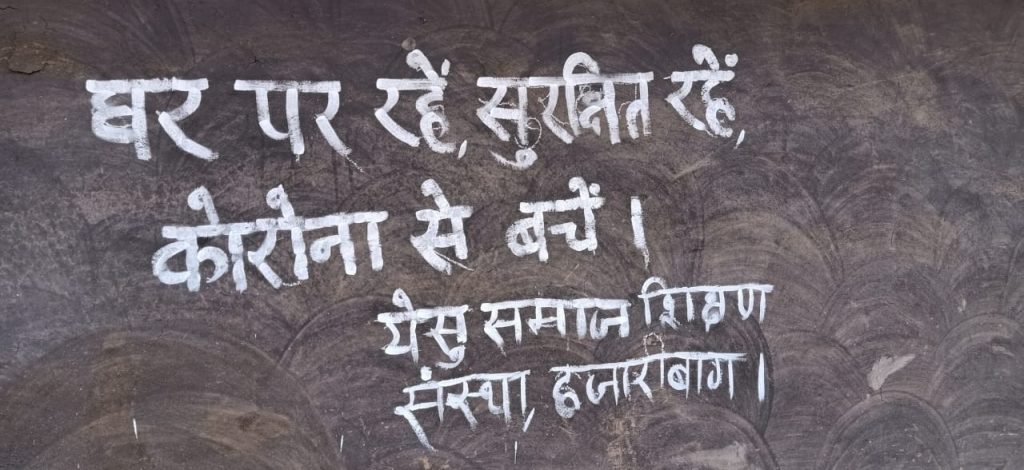 घर पर रहें, सुरक्षित रहें,
कोरोना से बचें।
येसु समाज शिक्षण
संस्था, हजारीबाग।